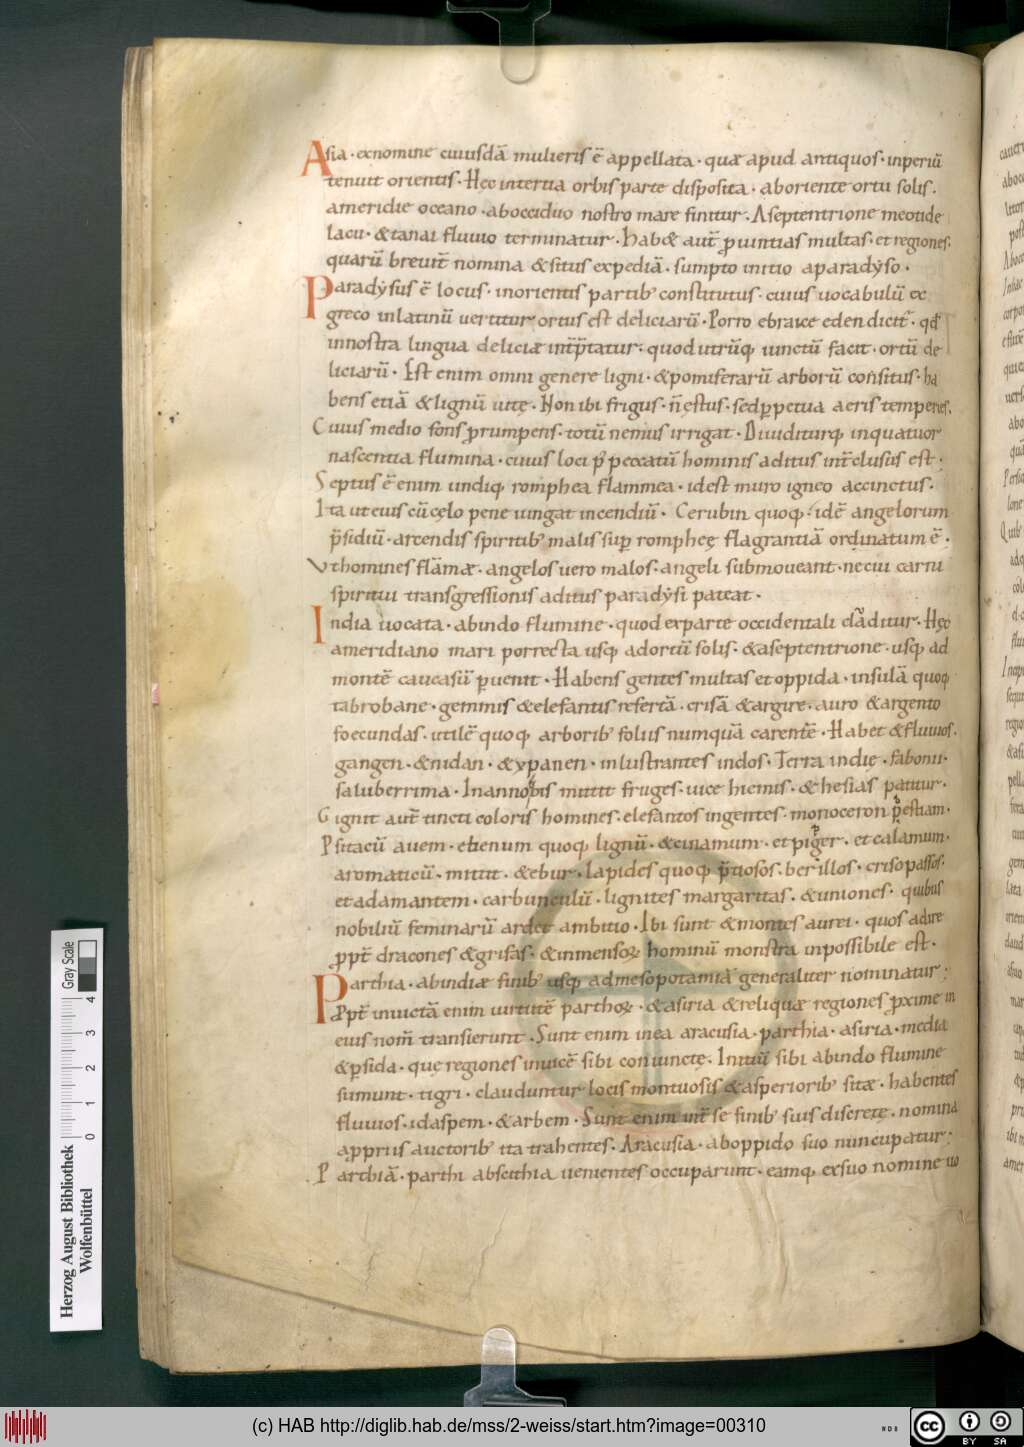 Asia · ex nomine cuiusdā mulieris ē appellata · quæ apud antiquos · inperiū
tenuit orientis · Hęc in tertia orbis parte disposita · ab oriente ortu solis ·
a meridie oceano · ab occiduo nostro mare finitur · A septentrione meotide
lacu · & tanai fluuio terminatur · Hab& aut̄ ꝓuintias multas · et regiones ·
quarū breuit̄ nomina & situs expediā · sumpto initio a paradẏso ·
Paradẏsus ē locus · in orientis partib' constitutus · cuius uocabulū ex
greco in latinū uertitur ortus est deliciarū · Porro ebraice eden dicit̄ · qđ
in nostra lingua deliciæ int̄p̄tatur · quod utrūq; iunctū facit · ortū de
liciarū · Est enim omni genere ligni · & pomiferarū arborū consitus · ha
bens etiā & lignū uitę · Non ibi frigus · n̄ ęstus · sed ꝑpetua aeris temperies ·
Cuius medio fons prumpens · totū nemus irrigat · Diuiditurq; in quatuor
nascentia flumina · cuius loci p̄ peccatū hominis aditus int̄clusus est ·
Septus ē enim undiq; romphea flammea · id est muro igneo accinctus ·
Ita ut eius cū cęlo pene iungat incendiū · Cerubin quoq; · idē angelorum
p̄sidiū · arcendis spiritib' malis suꝑ romphęę flagrantiā ordinatum ē ·
Vt homines flāmæ · angelos uero malos · angeli submoueant · ne cui carni
spiritui transgressionis aditus paradẏsi pateat ·
India uocata · ab indo flumine · quod ex parte occidentali clāditur · Hęc
a meridiano mari porrecta usq; ad ortū solis · & a septentrione · usq; ad
montē caucasū ꝑuenit · Habens gentes multas et oppida · insulā quoq;
tabrobane · gemmis & elefantis refertā · crisā & argire · auro & argento
foecundas · utilē quoq; arborib' foliis numquā carentē · Habet & fluuios ·
gangen · & nidan · & ypanen · inlustrantes indos · Terra indię · fabonii ·
saluberrima · In anno bis mittit fruges · uice hiemis · & hesias patitur ·
Gignit aut̄ tincti coloris homines · elefantos ingentes · monoceron bestiam ·
Psitacū auem · ebenum quoq; lignū · & cinamum · et piper · et calamum ·
aromaticū · mittit · & ebur · lapides quoq; p̄tiosos · berillos · crisopassos ·
et adamantem · carbunculū · lignites margaritas · & uniones · quibus
nobiliū feminarū ardet ambitio · Ibi sunt & montes aurei · quos adire
ꝓpt̄ dracones & grifas · & inmensoꝝ hominū monstra inpossibile est ·
Parthia · ab indiæ finib' usq; ad mesopotamiā generaliter nominatur ·
ꝓpt̄ inuictā enim uirtutē parthoꝝ · & asiria & reliquæ regiones ꝓxime in
eius nom̄ transierunt · Sunt enim in ea aracusia · parthia · asiria · media
& ꝑsida · quę regiones inuicē sibi coniunctę · Initiū sibi ab indo flumine
sumunt · tigri · clauduntur locis montuosis & asperiorib' sitæ · habentes
fluuios · idaspem · & arbem · Sunt enim int̄ se finib' suis discretę · nomina
a ppriis auctorib' ita trahentes · Aracusia · ab oppido suo nuncupatur ·
Parthiā · parthi ab scithia uenientes occuparunt · eamq; ex suo nomine uo
Gray Scale
0 1 2 3 4
Herzog August Bibliothek
Wolfenbüttel
(c) HAB http://diglib.hab.de/mss/2-weiss/start.htm?image=00310
cc BY SA